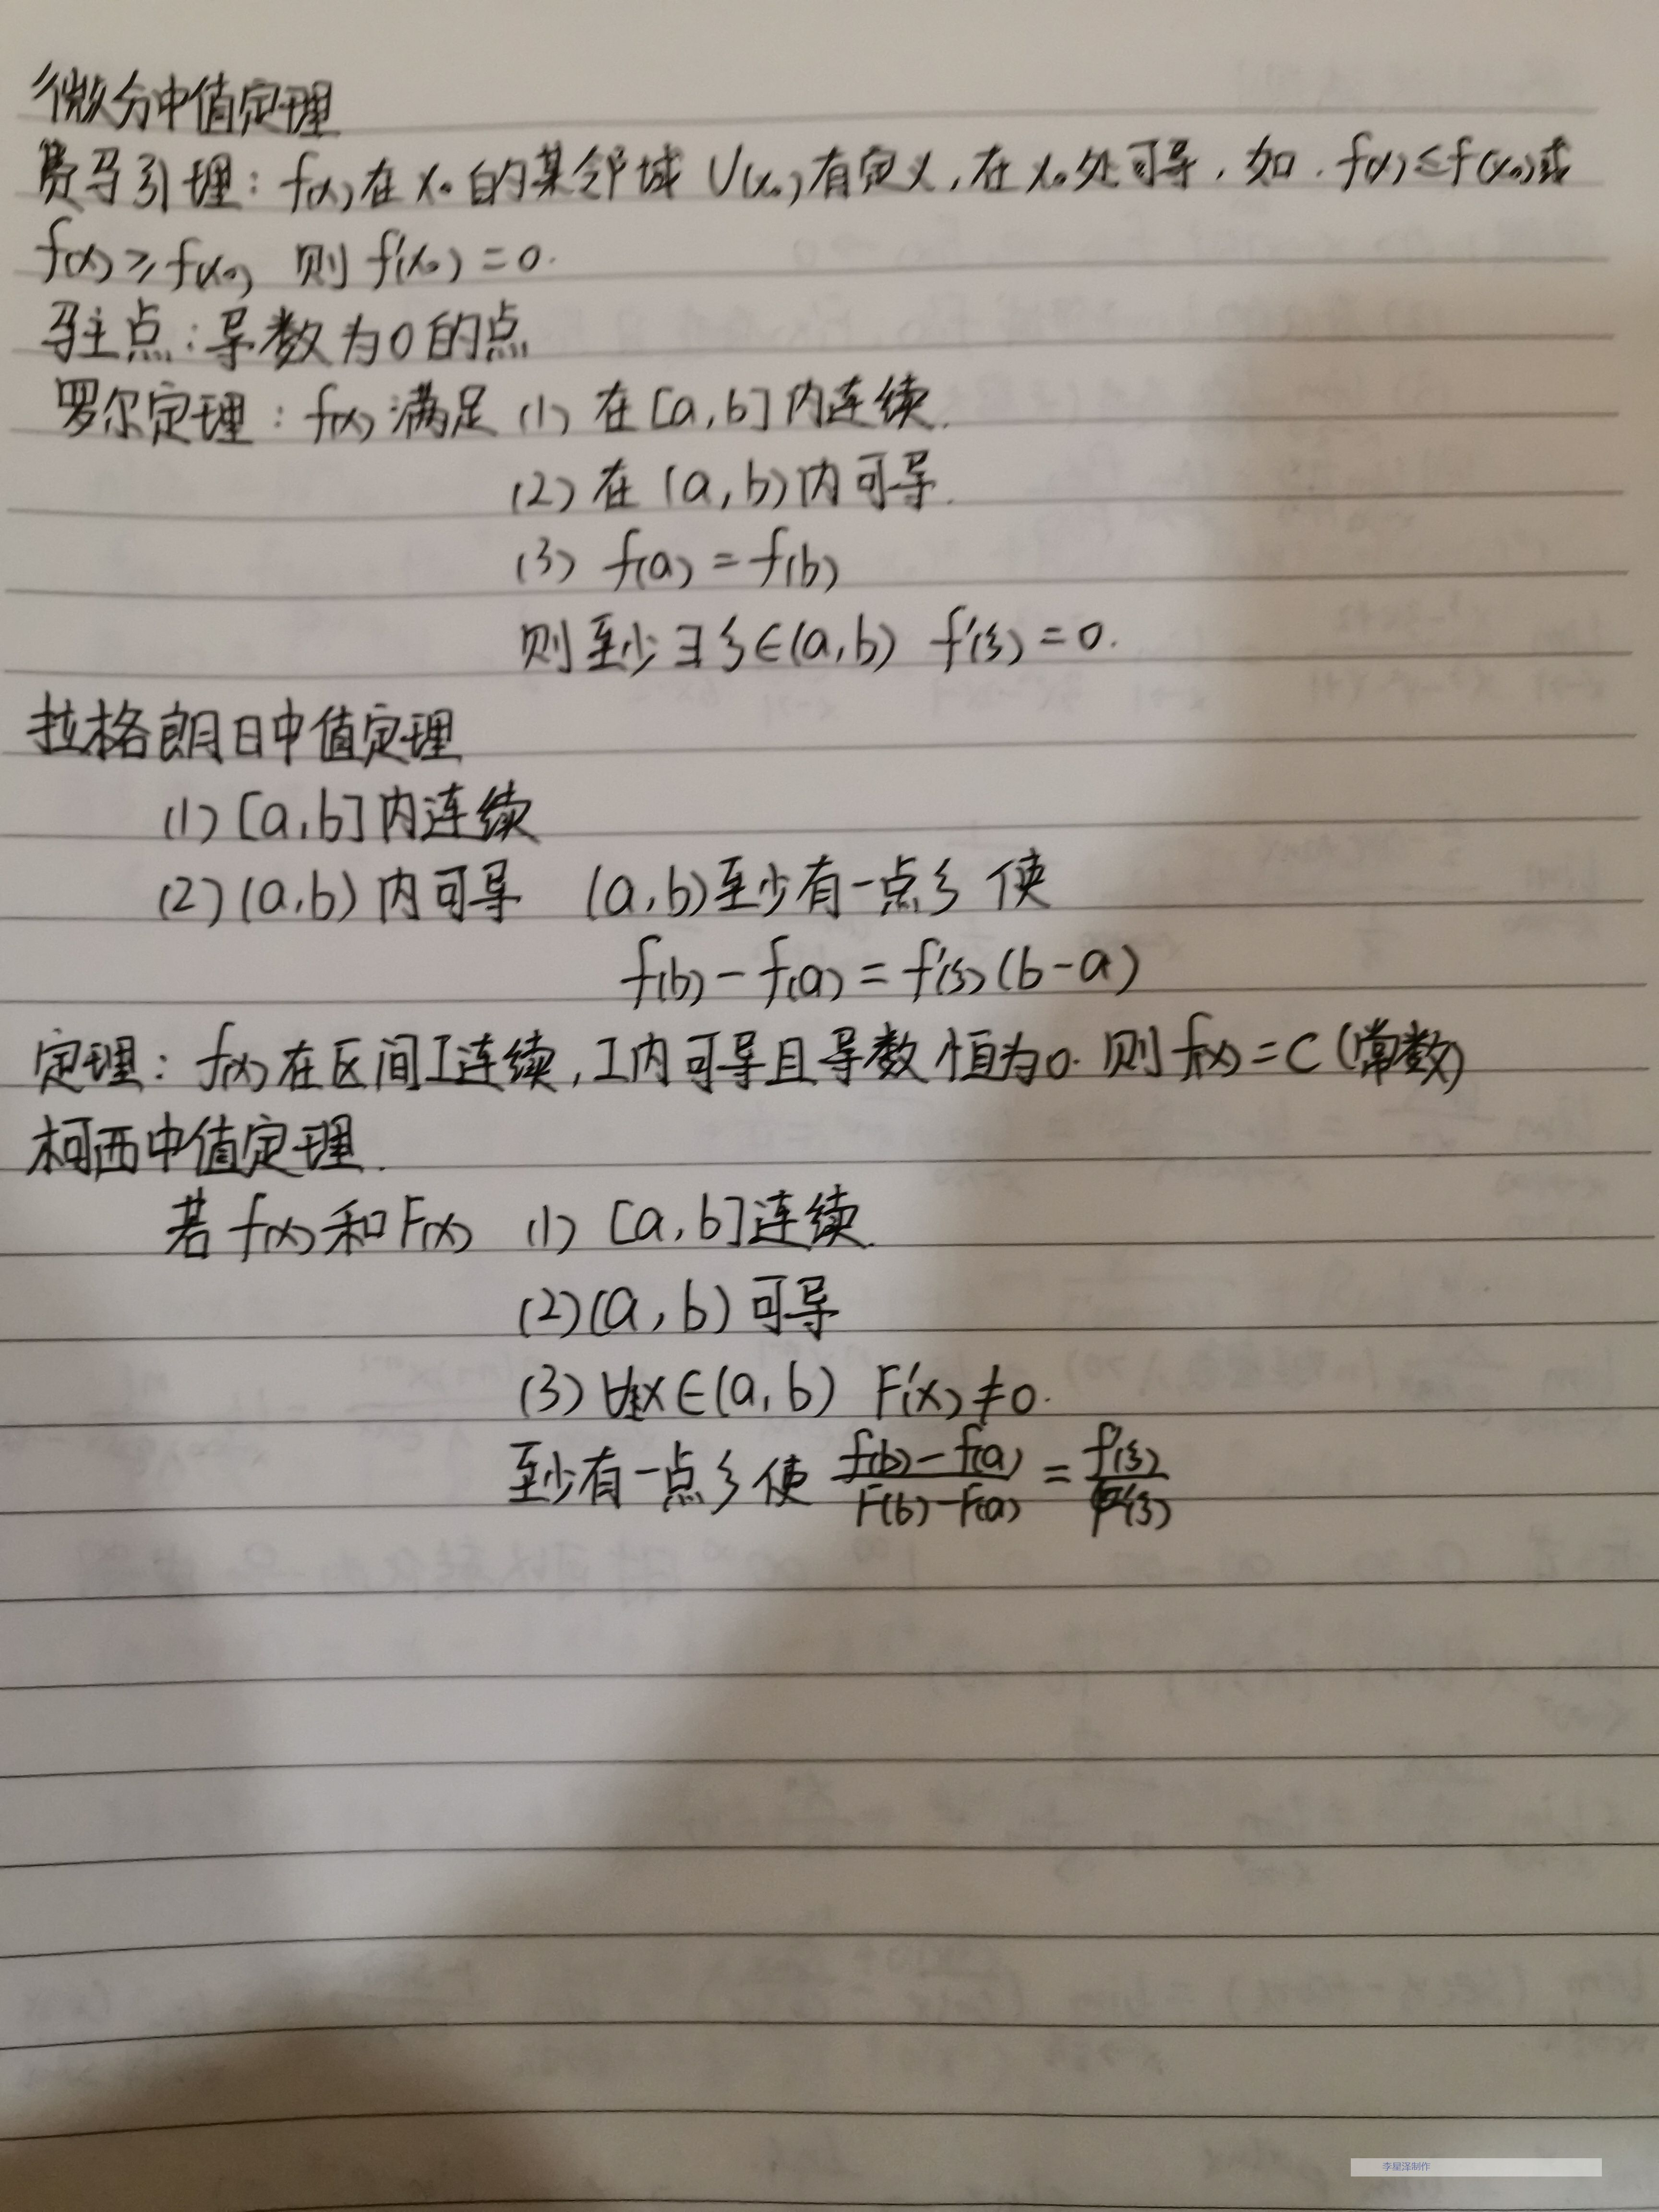 微分中值定理
费马引理：f(x)在x₀的某邻域U(x₀)有定义，在x₀处可导，如．f(x)≤f(x₀)或
f(x)≥f(x₀) 则f'(x₀)=0.
驻点：导数为0的点
罗尔定理：f(x)满足 (1) 在[a,b]内连续.
(2) 在(a,b)内可导.
(3) f(a)=f(b)
则至少∃ξ∈(a,b) f'(ξ)=0.
拉格朗日中值定理
(1)[a,b]内连续
(2)(a,b)内可导 (a,b)至少有一点ξ 使
f(b)-f(a)=f'(ξ)(b-a)
定理：f(x)在区间I连续，I内可导且导数恒为0. 则f(x)=C(常数)
柯西中值定理.
若f(x)和F(x) (1) [a,b]连续.
(2)(a,b)可导
(3) ∀x∈(a,b) F'(x)≠0.
至少有一点ξ使 \frac{f(b)-f(a)}{F(b)-F(a)} = \frac{f'(ξ)}{F'(ξ)}
李星泽制作